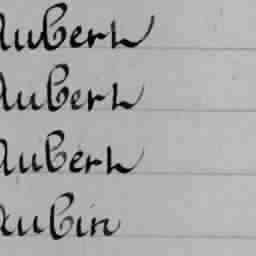 Aubert
Aubert
Aubert
Aubin